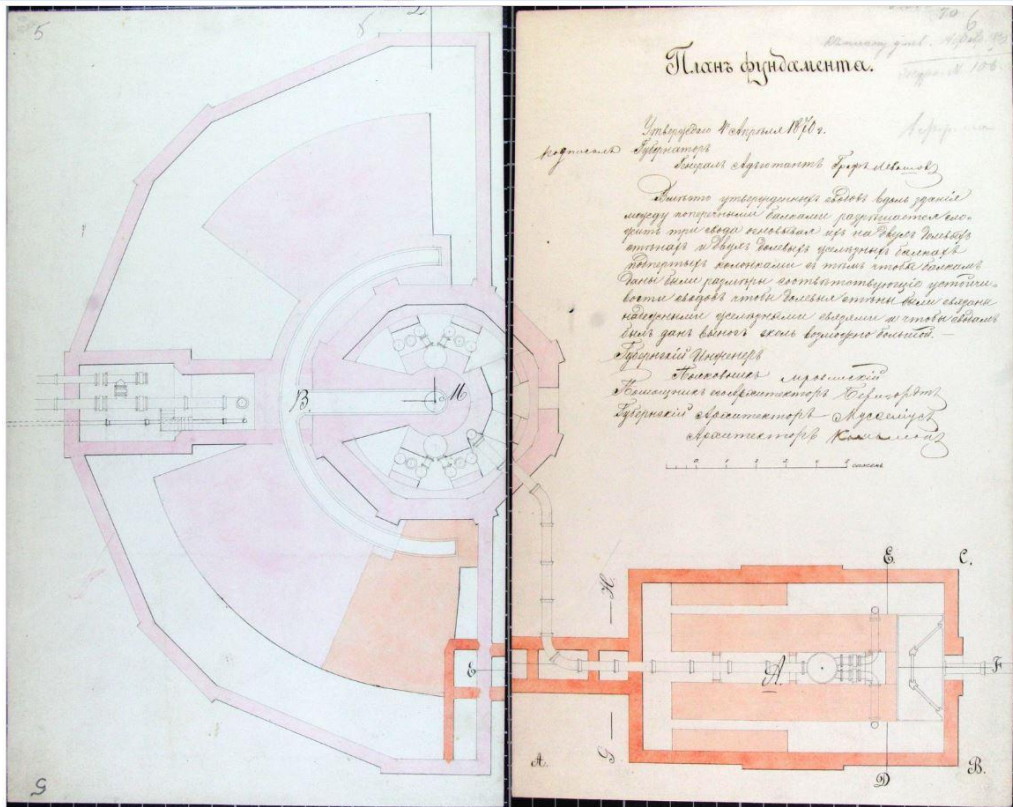 5
6
Планъ фундамента.
Утверждено 4 Апрѣля 1870 г.
подписалъ Губернаторъ
Генералъ Адъютантъ Графъ Левашовъ
Вмѣсто утвержденныхъ сводовъ вдоль зданія
между поперечными балками разрѣшается сло-
жить три свода основывая ихъ на двухъ долевыхъ
стѣнахъ и двухъ долевыхъ желѣзныхъ балкахъ
подпертыхъ колонками съ тѣмъ чтобы балкамъ
даны были размѣры соотвѣтствующіе устойчи-
вости сводовъ чтобы долевыя стѣны были связаны
надежными желѣзными связями и чтобы сводамъ
былъ данъ выносъ сколь возможно большой. —
Губернскій Инженеръ
Полковникъ
Помощникъ Архитекторъ
Губернскій Архитекторъ
Архитекторъ
сажень
B.
M
H
E.
C.
E
A.
F
G
A.
D
B.
5